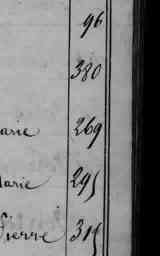 96
380
arie 269
Marie 295
Pierre 315